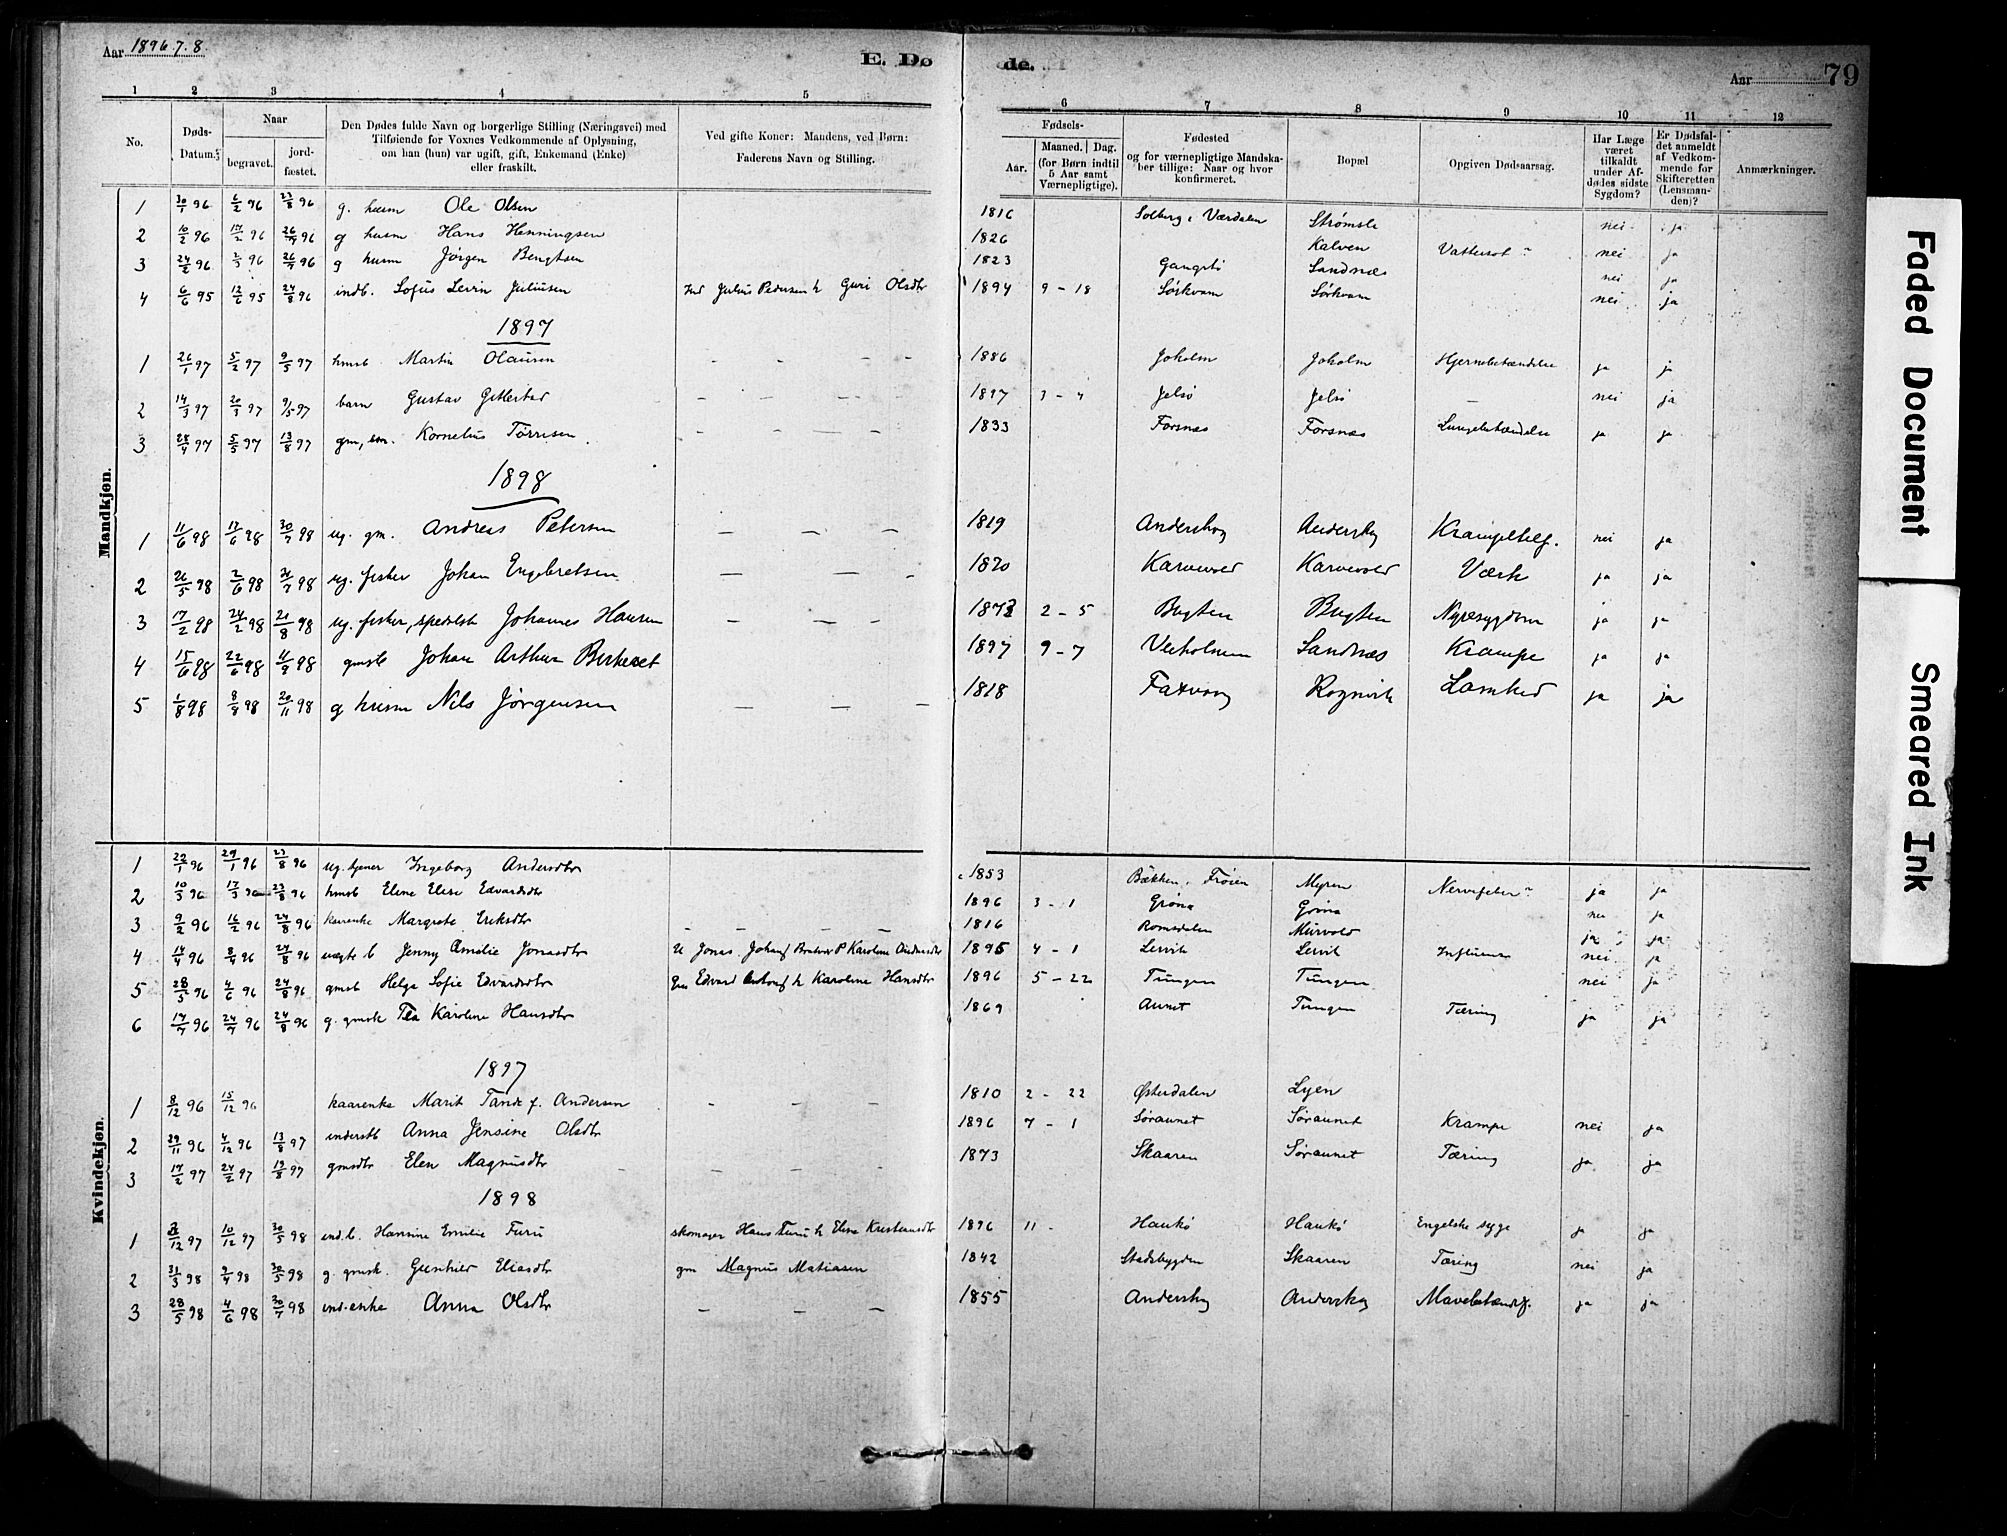 Aar 1896.7.8.
E. Dø
de.
Aar
79
1 2 3 4 5 6 7 8 9 10 11 12
No.
Døds-Datum.
Naar
begravet.
jordfæstet.
Den Dødes fulde Navn og borgerlige Stilling (Næringsvei) med
Tilføiende for Voxnes Vedkommende af Oplysning,
om han (hun) var ugift, gift, Enkemand (Enke)
eller fraskilt.
Ved gifte Koner: Mandens, ved Børn:
Faderens Navn og Stilling.
Fødsels-
Aar.
Maaned. Dag.
(for Børn indtil
5 Aar samt
Værnepligtige).
Fødested
og for værnepligtige Mandska-
ber tillige: Naar og hvor
konfirmeret.
Bopæl
Opgiven Dødsaarsag.
Har Læge
været
tilkaldt
under Af-
dødes sidste
Sygdom?
Er Dødsfal-
det anmeldt
af Vedkom-
mende for
Skifteretten
(Lensman-
den)?
Anmærkninger.
Mandkjøn.
1 30/1 96 6/2 96 23/8 96 g. husm Ole Olsen 1816 Solberg i Værdalen Strømsli nei ja
2 10/2 96 17/2 96 26/7 96 g husm Hans Henningsen 1826 Kalven Vattersot nei ja
3 24/2 96 2/3 96 26/7 96 g husm Jørgen Bengtsen 1823 Gangstø Sandnæs nei ja
4 6/6 95 12/6 95 24/8 96 indb. Sofus Levin Juliusen Ind Julius Pedersen h Guri Olsdtr 1894 9 - 18 Sørkvam Sørkvam nei ja
1897
1 26/1 97 5/2 97 9/5 97 hmsb Martin Olausen 1886 Joholm Joholm Hjernebetændelse ja ja
2 14/3 97 20/3 97 9/5 97 barn Gustav Gettertad 1897 3 - 4 Jelsø Jelsø nei ja
3 28/4 97 5/5 97 13/8 97 gm, em. Kornelius Tørrisen 1833 Forsnæs Forsnæs Lungebetændelse ja ja
1898
1 11/6 98 17/6 98 30/7 98 ug. gm. Andreas Petersen 1819 Anderskog Anderskog Krampetilf. nei ja
2 26/5 98 2/6 98 30/7 98 ug. fisker Johan Engebretsen 1820 Karvevold Karvevold Værk ja ja
3 17/2 98 24/2 98 21/8 98 ug. fisker, spedalsk Johannes Hansen 1873 2 - 5 Bugten Bugten Nyresygdom ja ja
4 15/6 98 22/6 98 11/9 98 gmsb Johan Arthur Birkeset 1897 9 - 7 Veiholmen Sandnæs Krampe ja ja
5 1/8 98 8/8 98 20/11 98 g husm Nils Jørgensen 1818 Faxvaag Rognvik Lamhed ja ja
Kvindekjøn.
1 22/1 96 29/1 96 23/8 96 ug. tjener Ingeborg Andersdtr 1853 Bækken, Frøien Myren Nervefeber ja ja
2 10/3 96 17/3 96 23/8 96 hmsb Eline Elise Edvardsdtr 1896 3 - 1 Grøna Grøna nei ja
3 9/2 96 16/2 96 24/8 96 kaarenke Margrete Eriksdtr 1816 Romsdalen Mürvold ja ja
4 14/4 96 8/4 96 24/8 96 uægte b Jenny Amalie Jonasdtr 1895 4 - 1 Lervik Lervik Influensa nei ja
5 28/5 96 4/6 96 24/8 96 gmsb Helga Sofie Edvardsdtr gm Edvard h Karoline Hansdtr 1896 5 - 22 Tungen Tungen nei ja
6 17/7 96 24/7 96 24/8 96 g. gmsk Tea Karoline Hansdtr 1869 Aunet Tungen Tæring ja ja
1897
1 8/12 96 15/12 96 kaarenke Marit Tande f. Andersen 1810 2 - 22 Østerdalen Lyen
2 29/11 96 4/12 96 13/8 97 inderstb Anna Jensine Olsdtr 1896 7 - 1 Søraunet Søraunet Krampe nei ja
3 17/2 97 24/2 97 13/8 97 gmsdtr Elen Magnusdtr 1873 Skaaren Søraunet Tæring ja ja
1898
1 3/12 97 10/12 97 30/5 98 ind.b. Hansine Emilie Furu skomager Hans Furu h Elise Kristiansdtr 1896 11 - Haukø Haukø Engelske syge ja ja
2 31/3 98 9/4 98 30/5 98 g. gmsk. Gunhild Eliasdtr gm Magnus Matiasen 1842 Stadsbygden Skaaren Tæring nei ja
3 28/5 98 4/6 98 30/7 98 ind.enke Anna Olsdtr 1855 Anderskog Anderskog Mavebetændf. ja ja
Faded Document
Smeared Ink